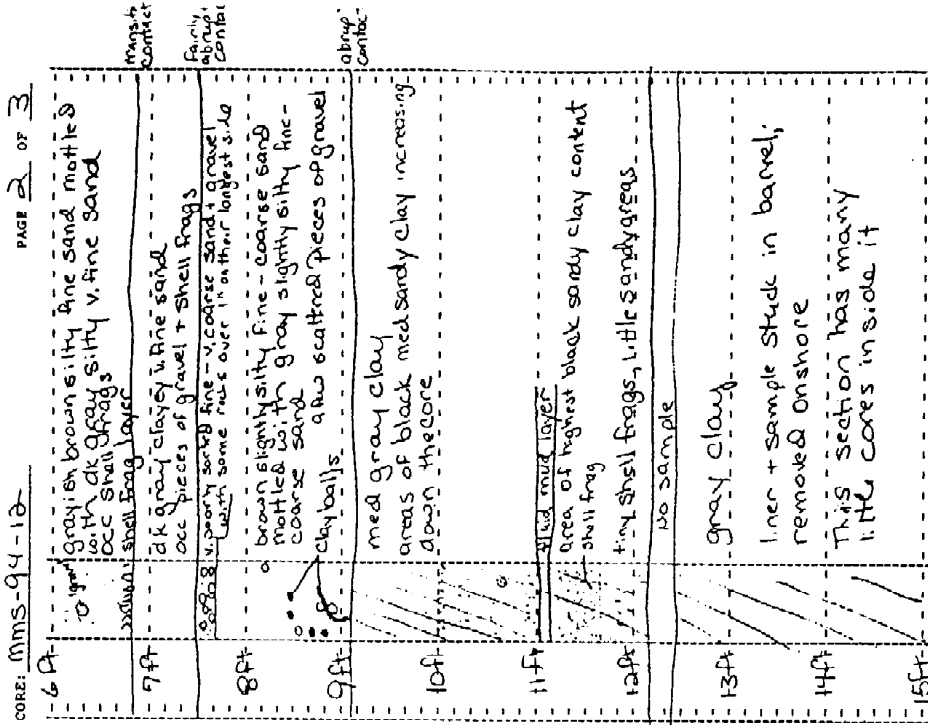 CORE: mms-94-12
PAGE 2 OF 3
6 ft
grayish brown silty fine sand mottled
with dk gray silty v. fine sand
occ shell frags
shell frag layer
transit.
contact
7ft
dk gray clayey v. fine sand
occ pieces of gravel + shell frags
fairly
abrupt
contac
v. poorly sorted fine - v. coarse sand + gravel
with some rocks over 1" on their longest side
8ft
brown slightly silty fine - coarse sand
mottled with gray slightly silty fine -
coarse sand
clay balls
a few scattred pieces of gravel
9ft
abrup-
contac-
med gray clay
areas of black med sandy clay increasing
down the core
10ft
11ft
fluid mud layer
area of highest black sandy clay content
shell frag
tiny shell frags, little sandy areas
12ft
No sample
gray clay
13ft
liner + sample stuck in barrel,
removed onshore
14ft
This section has many
little cores inside it
15ft